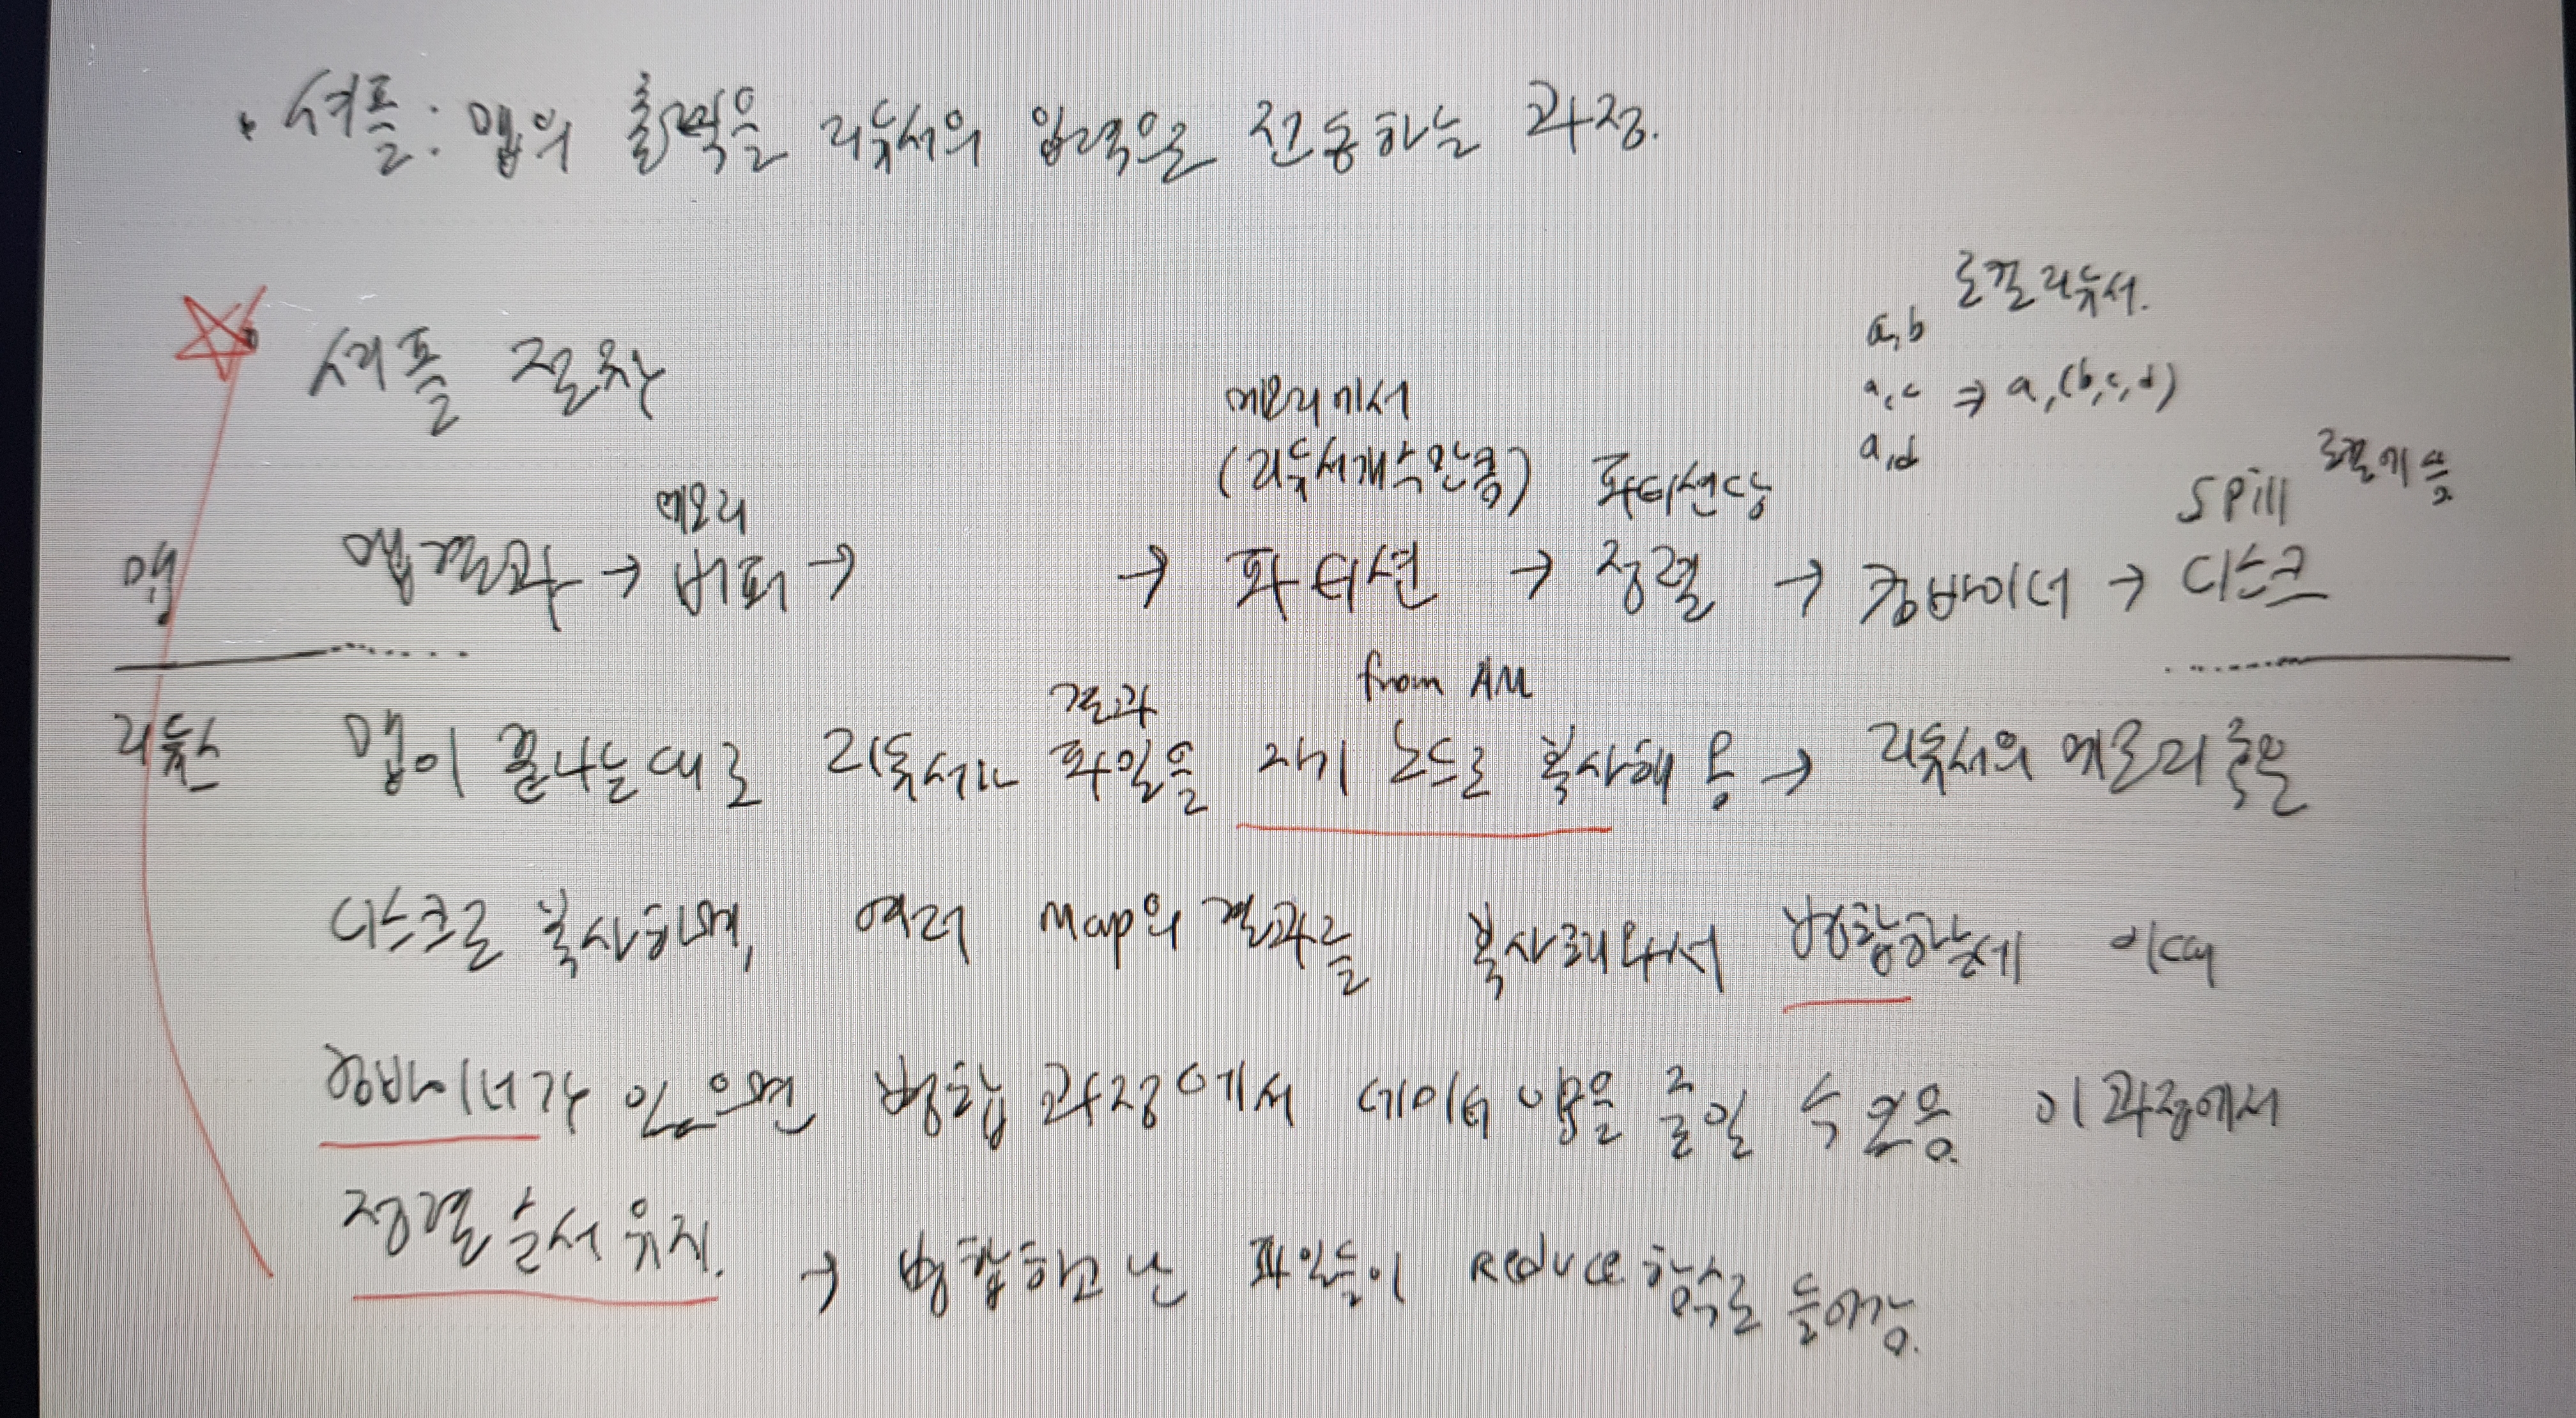 · 셔플: 맵의 출력을 리듀서의 입력으로 전송하는 과정.
로컬 리듀서.
a,b
셔플 절차
a,c ⇒ a,(b,c,d)
메모리에서
a,d
(리듀서개수만큼) 파티션당
메모리
spill 로컬에 씀
맵 맵결과 → 버퍼 → → 파티션 → 정렬 → 컴바이너 → 디스크
결과 from AM
리듀스 맵이 끝나는대로 리듀서가 파일을 자기 노드로 복사해 옴 → 리듀서의 메모리 혹은
디스크로 복사하며, 여러 Map의 결과를 복사해와서 병합하는데 이때
컴바이너가 있으면 병합 과정에서 데이터 양을 줄일 수 있음. 이 과정에서
정렬 순서 유지. → 병합하고 난 파일들이 Reduce 함수로 들어감.